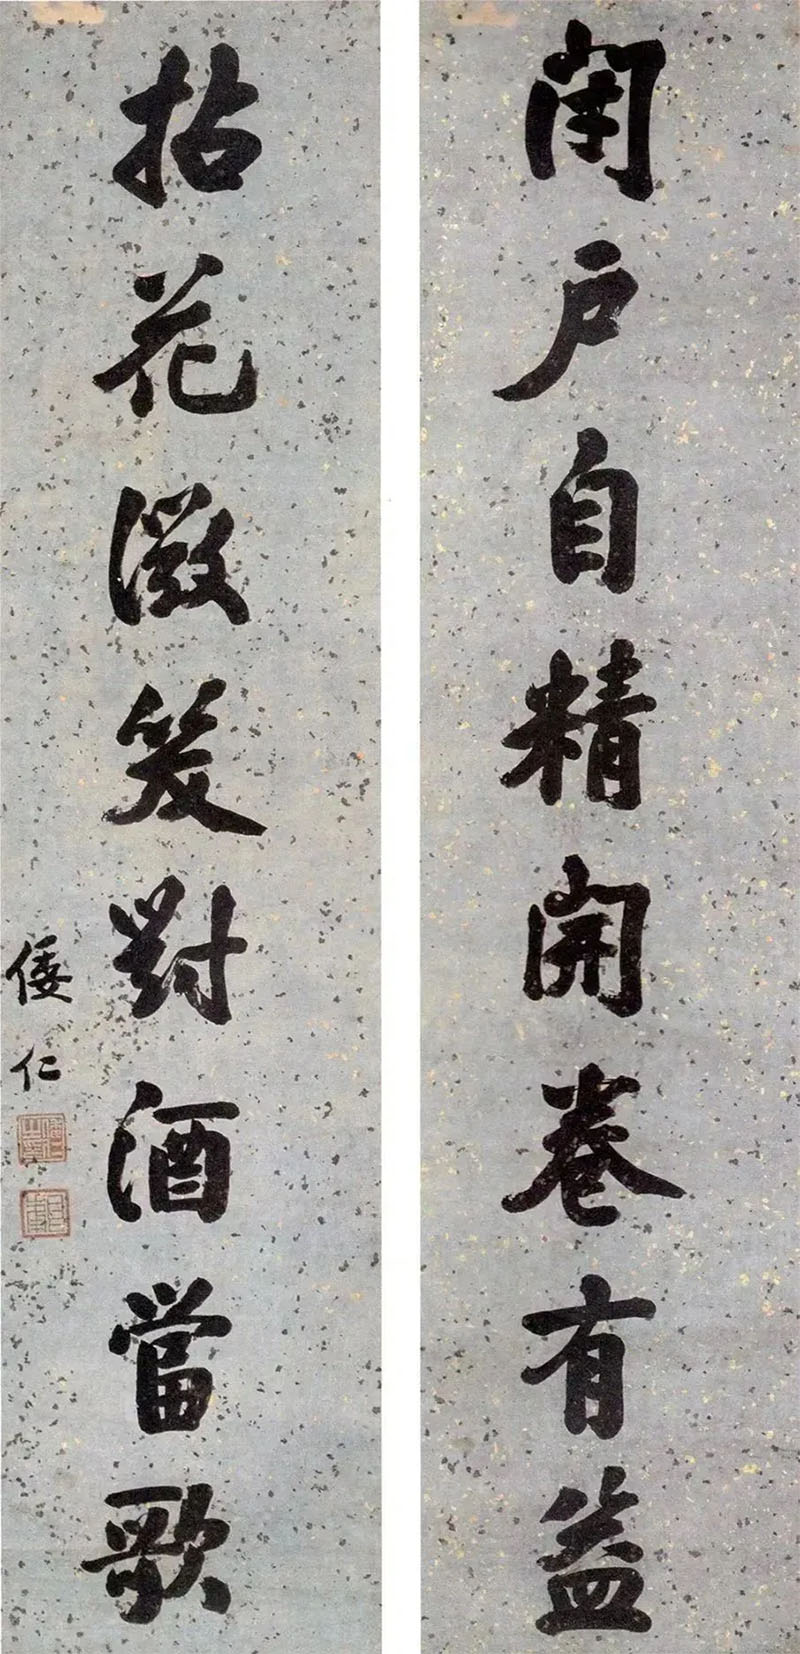 閉户自精開卷有益
拈花微笑對酒當歌
倭仁